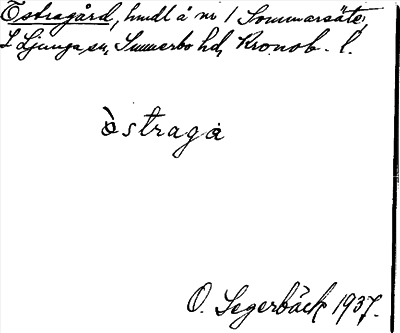 Östragård, hmdl å nr 1 Sommarsäte,
S Ljunga sn, Sunnerbo hd, Kronob. l.
òstraga
O. Segerbäck 1937.